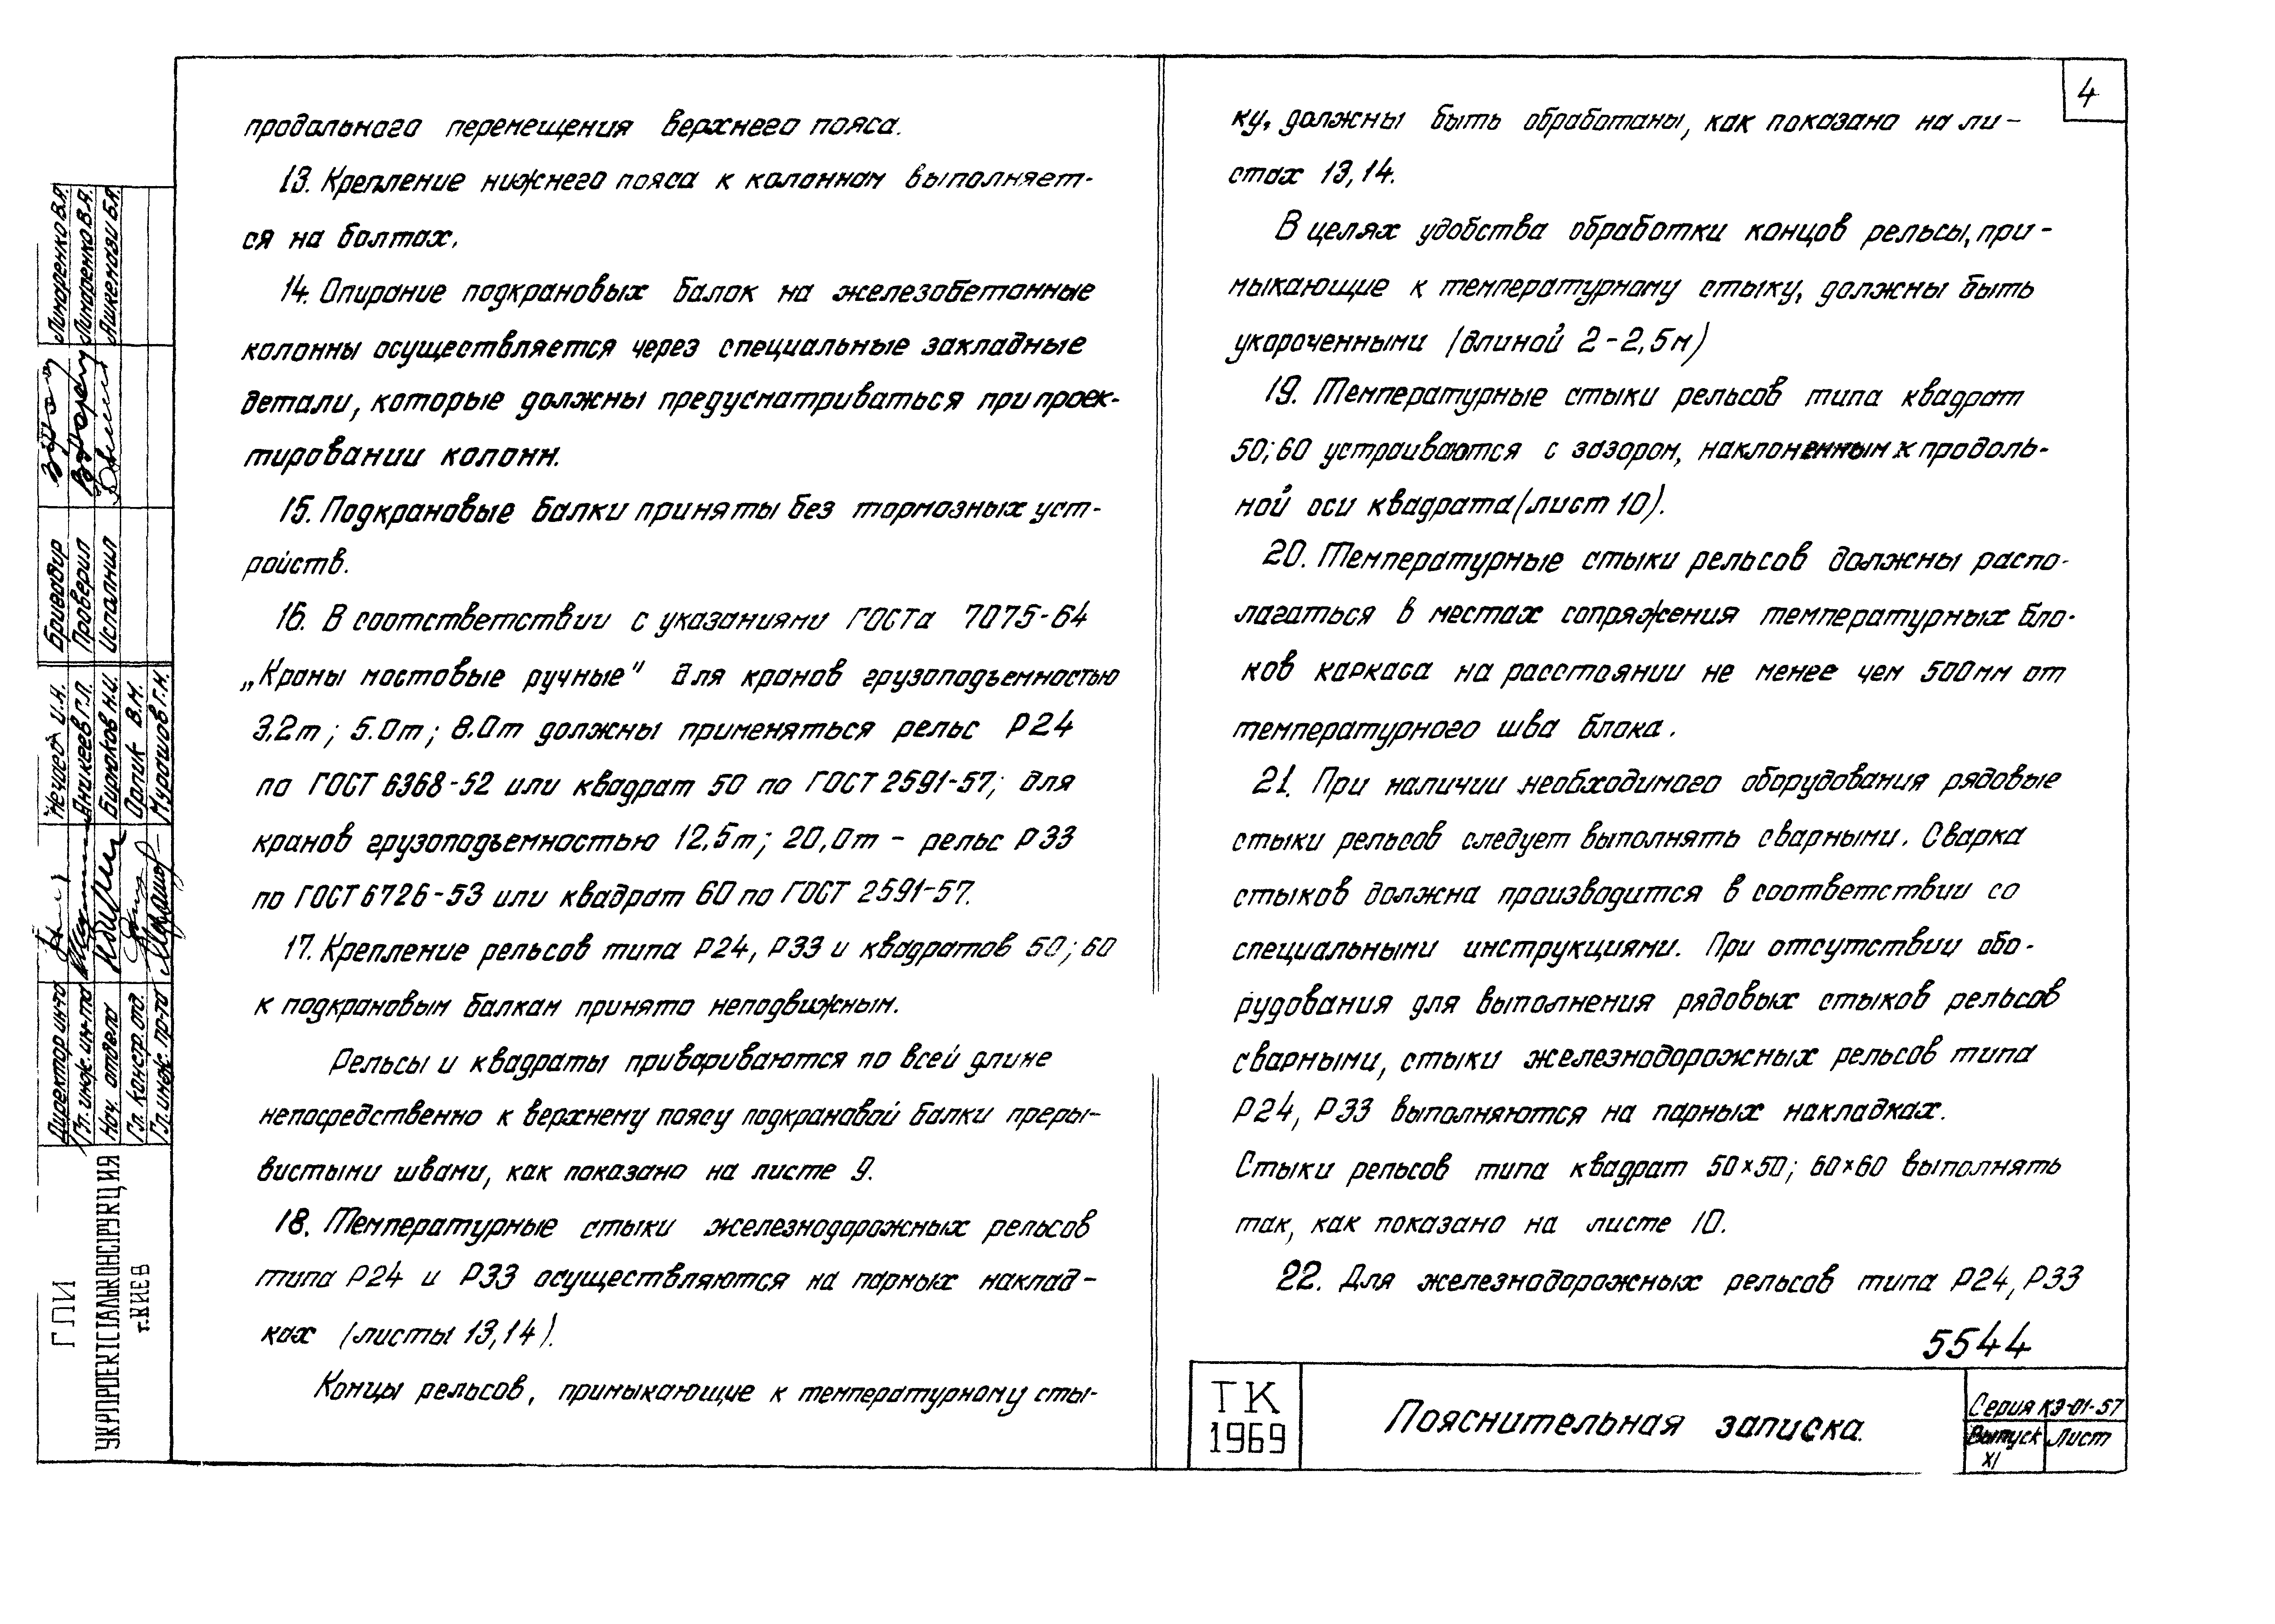 4
продольного перемещения верхнего пояса.
13. Крепление нижнего пояса к колоннам выполняет-
ся на болтах.
14. Опирание подкрановых балок на железобетонные
колонны осуществляется через специальные закладные
детали, которые должны предусматриваться при проек-
тировании колонн.
15. Подкрановые балки приняты без тормозных уст-
ройств.
16. В соответствии с указаниями ГОСТа 7075-64
„Краны мостовые ручные" для кранов грузоподъемностью
3,2т; 5.0т; 8.0т должны применяться рельс Р24
по ГОСТ 6368-52 или квадрат 50 по ГОСТ 2591-57; для
кранов грузоподъемностью 12,5т; 20,0т - рельс Р33
по ГОСТ 6726-53 или квадрат 60 по ГОСТ 2591-57.
17. Крепление рельсов типа Р24, Р33 и квадратов 50; 60
к подкрановым балкам принято неподвижным.
Рельсы и квадраты привариваются по всей длине
непосредственно к верхнему поясу подкрановой балки преры-
вистыми швами, как показано на листе 9.
18. Температурные стыки железнодорожных рельсов
типа Р24 и Р33 осуществляются на парных наклад-
ках (листы 13,14).
Концы рельсов, примыкающие к температурному сты-
ку, должны быть обработаны, как показано на ли-
стах 13,14.
В целях удобства обработки концов рельсы, при-
мыкающие к температурному стыку, должны быть
укороченными (длиной 2-2,5м)
19. Температурные стыки рельсов типа квадрат
50; 60 устраиваются с зазором, наклоненным к продоль-
ной оси квадрата (лист 10).
20. Температурные стыки рельсов должны распо-
лагаться в местах сопряжения температурных бло-
ков каркаса на расстоянии не менее чем 500мм от
температурного шва блока.
21. При наличии необходимого оборудования рядовые
стыки рельсов следует выполнять сварными. Сварка
стыков должна производится в соответствии со
специальными инструкциями. При отсутствии обо-
рудования для выполнения рядовых стыков рельсов
сварными, стыки железнодорожных рельсов типа
Р24, Р33 выполняются на парных накладках.
Стыки рельсов типа квадрат 50×50; 60×60 выполнять
так, как показано на листе 10.
22. Для железнодорожных рельсов типа Р24, Р33
5544
ТК
1969
Пояснительная записка.
Серия КЭ-01-57
Выпуск XI
Лист
ГПИ
УКРПРОЕКТСТАЛЬКОНСТРУКЦИЯ
г. КИЕВ
Директор ин-та
Гл. инж. ин-та Аникеев Г.Л.
Нач. отдела Бирюков Н.И.
Гл. констр. отд. Орлик В.М.
Гл. инж. пр-та Мурашов Г.М.
Бригадир Линаренко В.Я.
Проверил Линаренко В.Я.
Исполнил Ашкенази Б.Я.